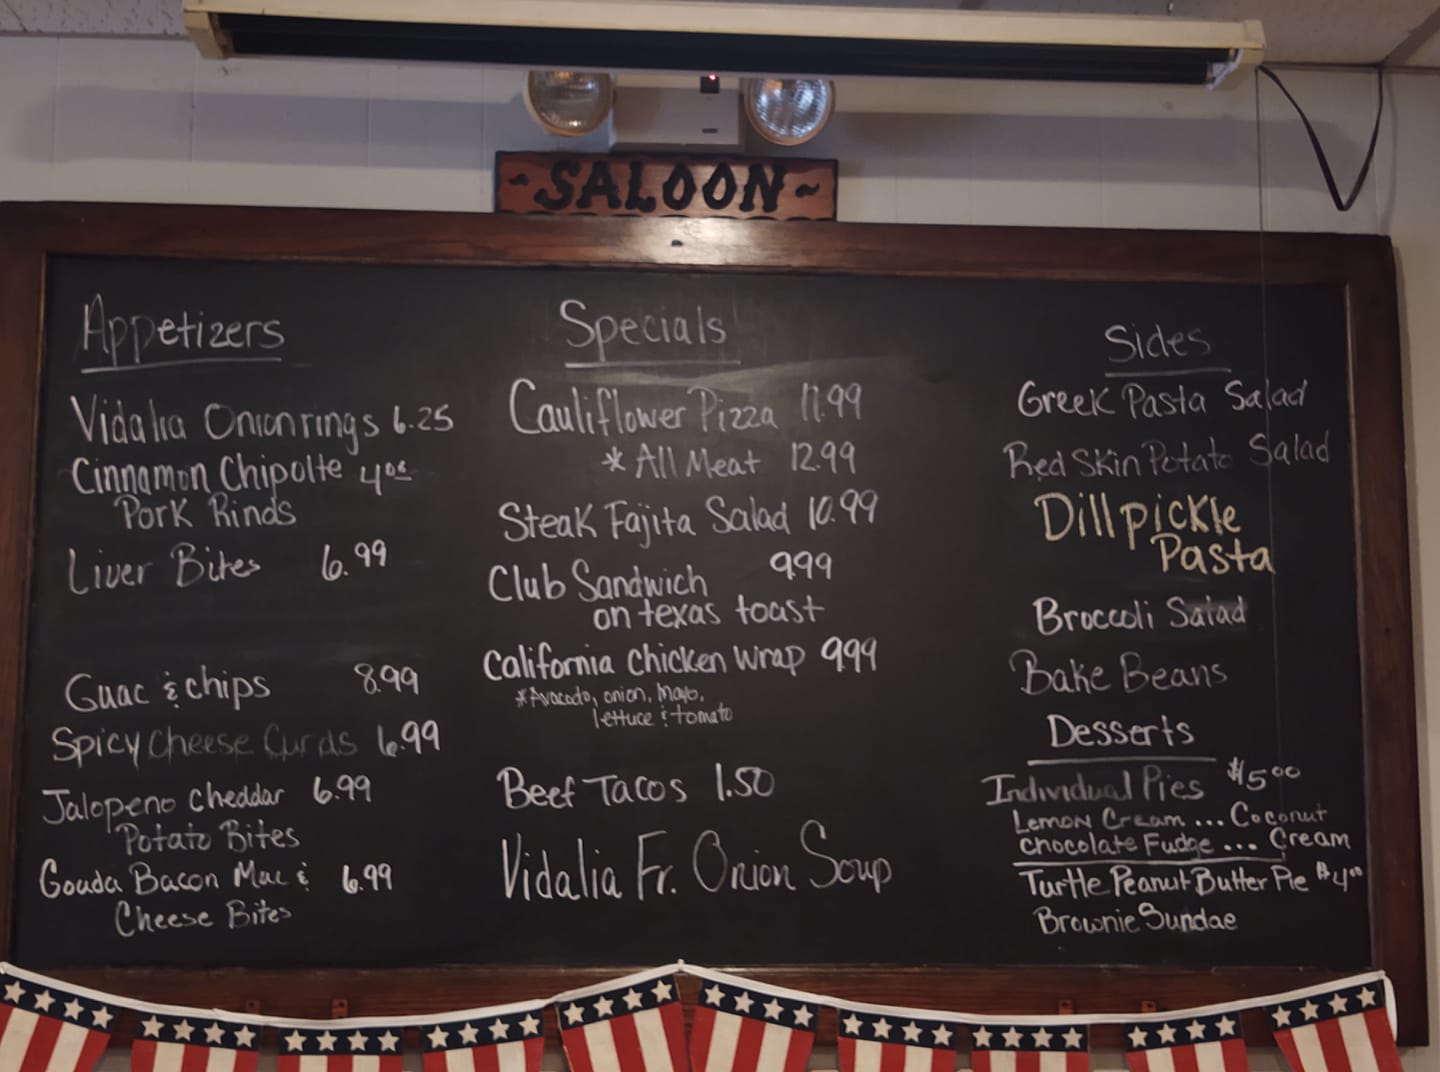 ~SALOON~
Appetizers
Vidalia Onion rings 6.25
Cinnamon Chipolte 4.00
Pork Rinds
Liver Bites 6.99
Guac & chips 8.99
Spicy Cheese Curds 6.99
Jalopeno Cheddar 6.99
Potato Bites
Gouda Bacon Mac & 6.99
Cheese Bites
Specials
Cauliflower Pizza 11.99
* All Meat 12.99
Steak Fajita Salad 10.99
Club Sandwich 9.99
on texas toast
California Chicken Wrap 9.99
*Avocado, onion, Mayo,
lettuce & tomato
Beef Tacos 1.50
Vidalia Fr. Onion Soup
Sides
Greek Pasta Salad
Red Skin Potato Salad
Dill pickle
Pasta
Broccoli Salad
Bake Beans
Desserts
Individual Pies $5.00
Lemon Cream ... Coconut
Chocolate Fudge ... Cream
Turtle Peanut Butter Pie $4.00
Brownie Sundae